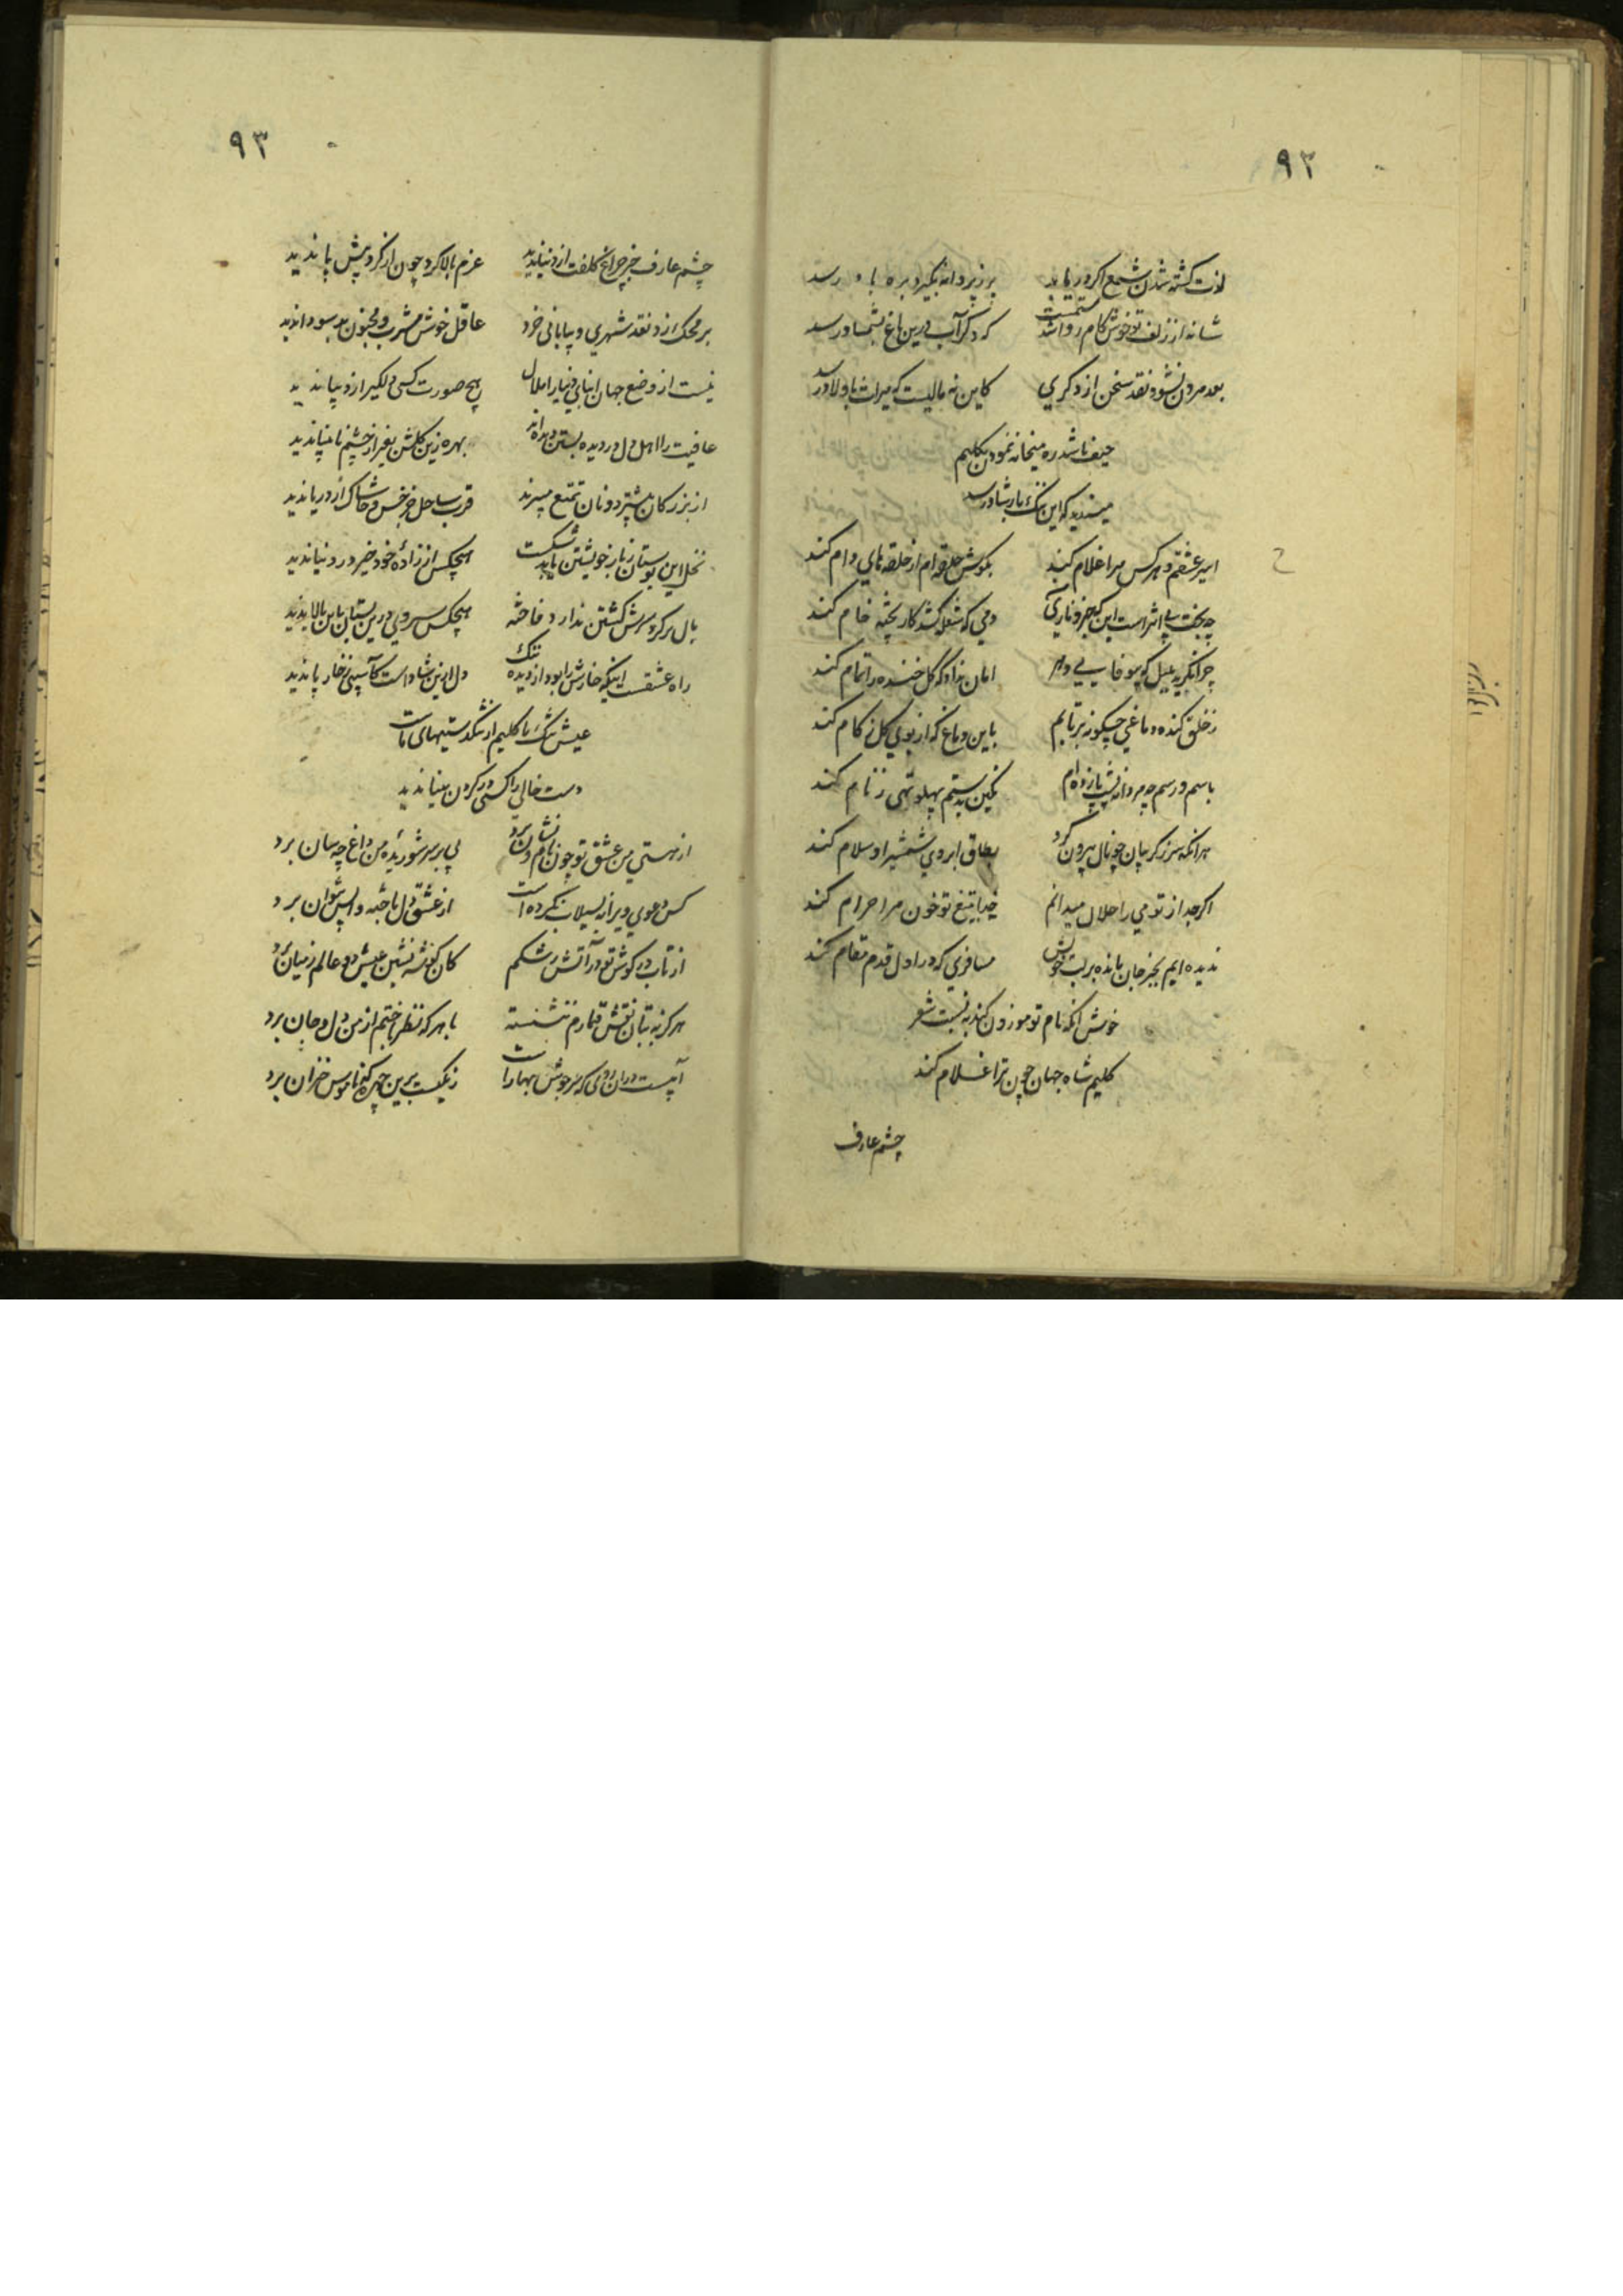 ۹۲
لذت کشته شدن شمع اگر دریابد
پر ز پروانه بگیرد بره باد رسد
شانه از زلف تو خوش کام روا شد
که دگر آب درین باغ بشمشاد رسد
بعد مردن نشود نقد سخن از دگری
کاین نه مالیست که میراث باولاد رسد
حیف باشد ره میخانه نمودن بکلیم
مپسندید که این ننگ بارشاد رسد
اسیر عشقم و هر کس مرا غلام کند
بگوش حلقه ام از حلقه های دام کند
چه بخت بی اثر است این که جز و ناری
دمی که شعله کشد کار پخته خام کند
چرا نگرید بلبل که بیوفایی دهر
امان نداد که گل خنده را تمام کند
ز خلق کنده دماغی چگونه برتابم
باین دماغ که از بوی گل زکام کند
باسم و رسم چه پردازم پشت پا زده ام
نگین بدستم پهلو تهی ز نام کند
هر آنکه سر ز گریبان چو نال بیرون کرد
بطاق ابروی شمشیر او سلام کند
اگر جدا از تو می را حلال میدانم
خدا بتیغ تو خون مرا حرام کند
ندیده ایم بجز جان مانده بر لب خویش
مسافری که در اول قدم مقام کند
خوش آنکه نام تو موزون کند به نسبت شعر
کلیم شاه جهان چون ترا غلام کند
چشم عارف
۹۳
چشم عارف جز چراغ کلفت از دنیا ندید
عزم بالا کرد چون از گرد پیش پا ندید
بر محک زد نقد شهری و بیابانی خرد
عاقل خوش مشرب و مجنون بدسودا ندید
نیست از وضع جهان ابنای دنیا را ملال
هیچ صورت کس دلگیر از دیبا ندید
عافیت را اهل دل در دیده بستن دیده اند
بهره زین گلشن بغیر از چشم نابینا ندید
از بزرگان بیشتر دونان تمتع میبرند
قرب ساحل جز خس و خاشاک از دریا ندید
نخل این بوستان ز بار خویشتن یابد شکست
هیچکس از زاده خود خیر در دنیا ندید
بال بر گرد سرش گشتن ندارد فاخته
هیچکس سروی درین بستان باین بالا ندید
راه عشقست اینکه خارش را بود از دیده ننگ
دل ازین شاد است کآسیبی ز خار پا ندید
عیش تنگ ما کلیم از تنگدستیهای ماست
دست خالی را کسی در گردن مینا ندید
از هستی من عشق تو چون نام و نشان برد
پی بر سر شوریده من داغ چه سان برد
کس دعوی ویرانه بسیلاب نکرده است
از عشق دل باخته واپس نتوان برد
از تاب در گوش تو در آتش رشکم
کان گوشه نشین عیش دو عالم ز میان برد
هرگز به بتان نقش قمارم ننشسته
با هر که نظر باختم از من دل و جان برد
آبیست در آن روی که سرجوش بهار است
رنگیست برین چهره که ناموس خزان برد